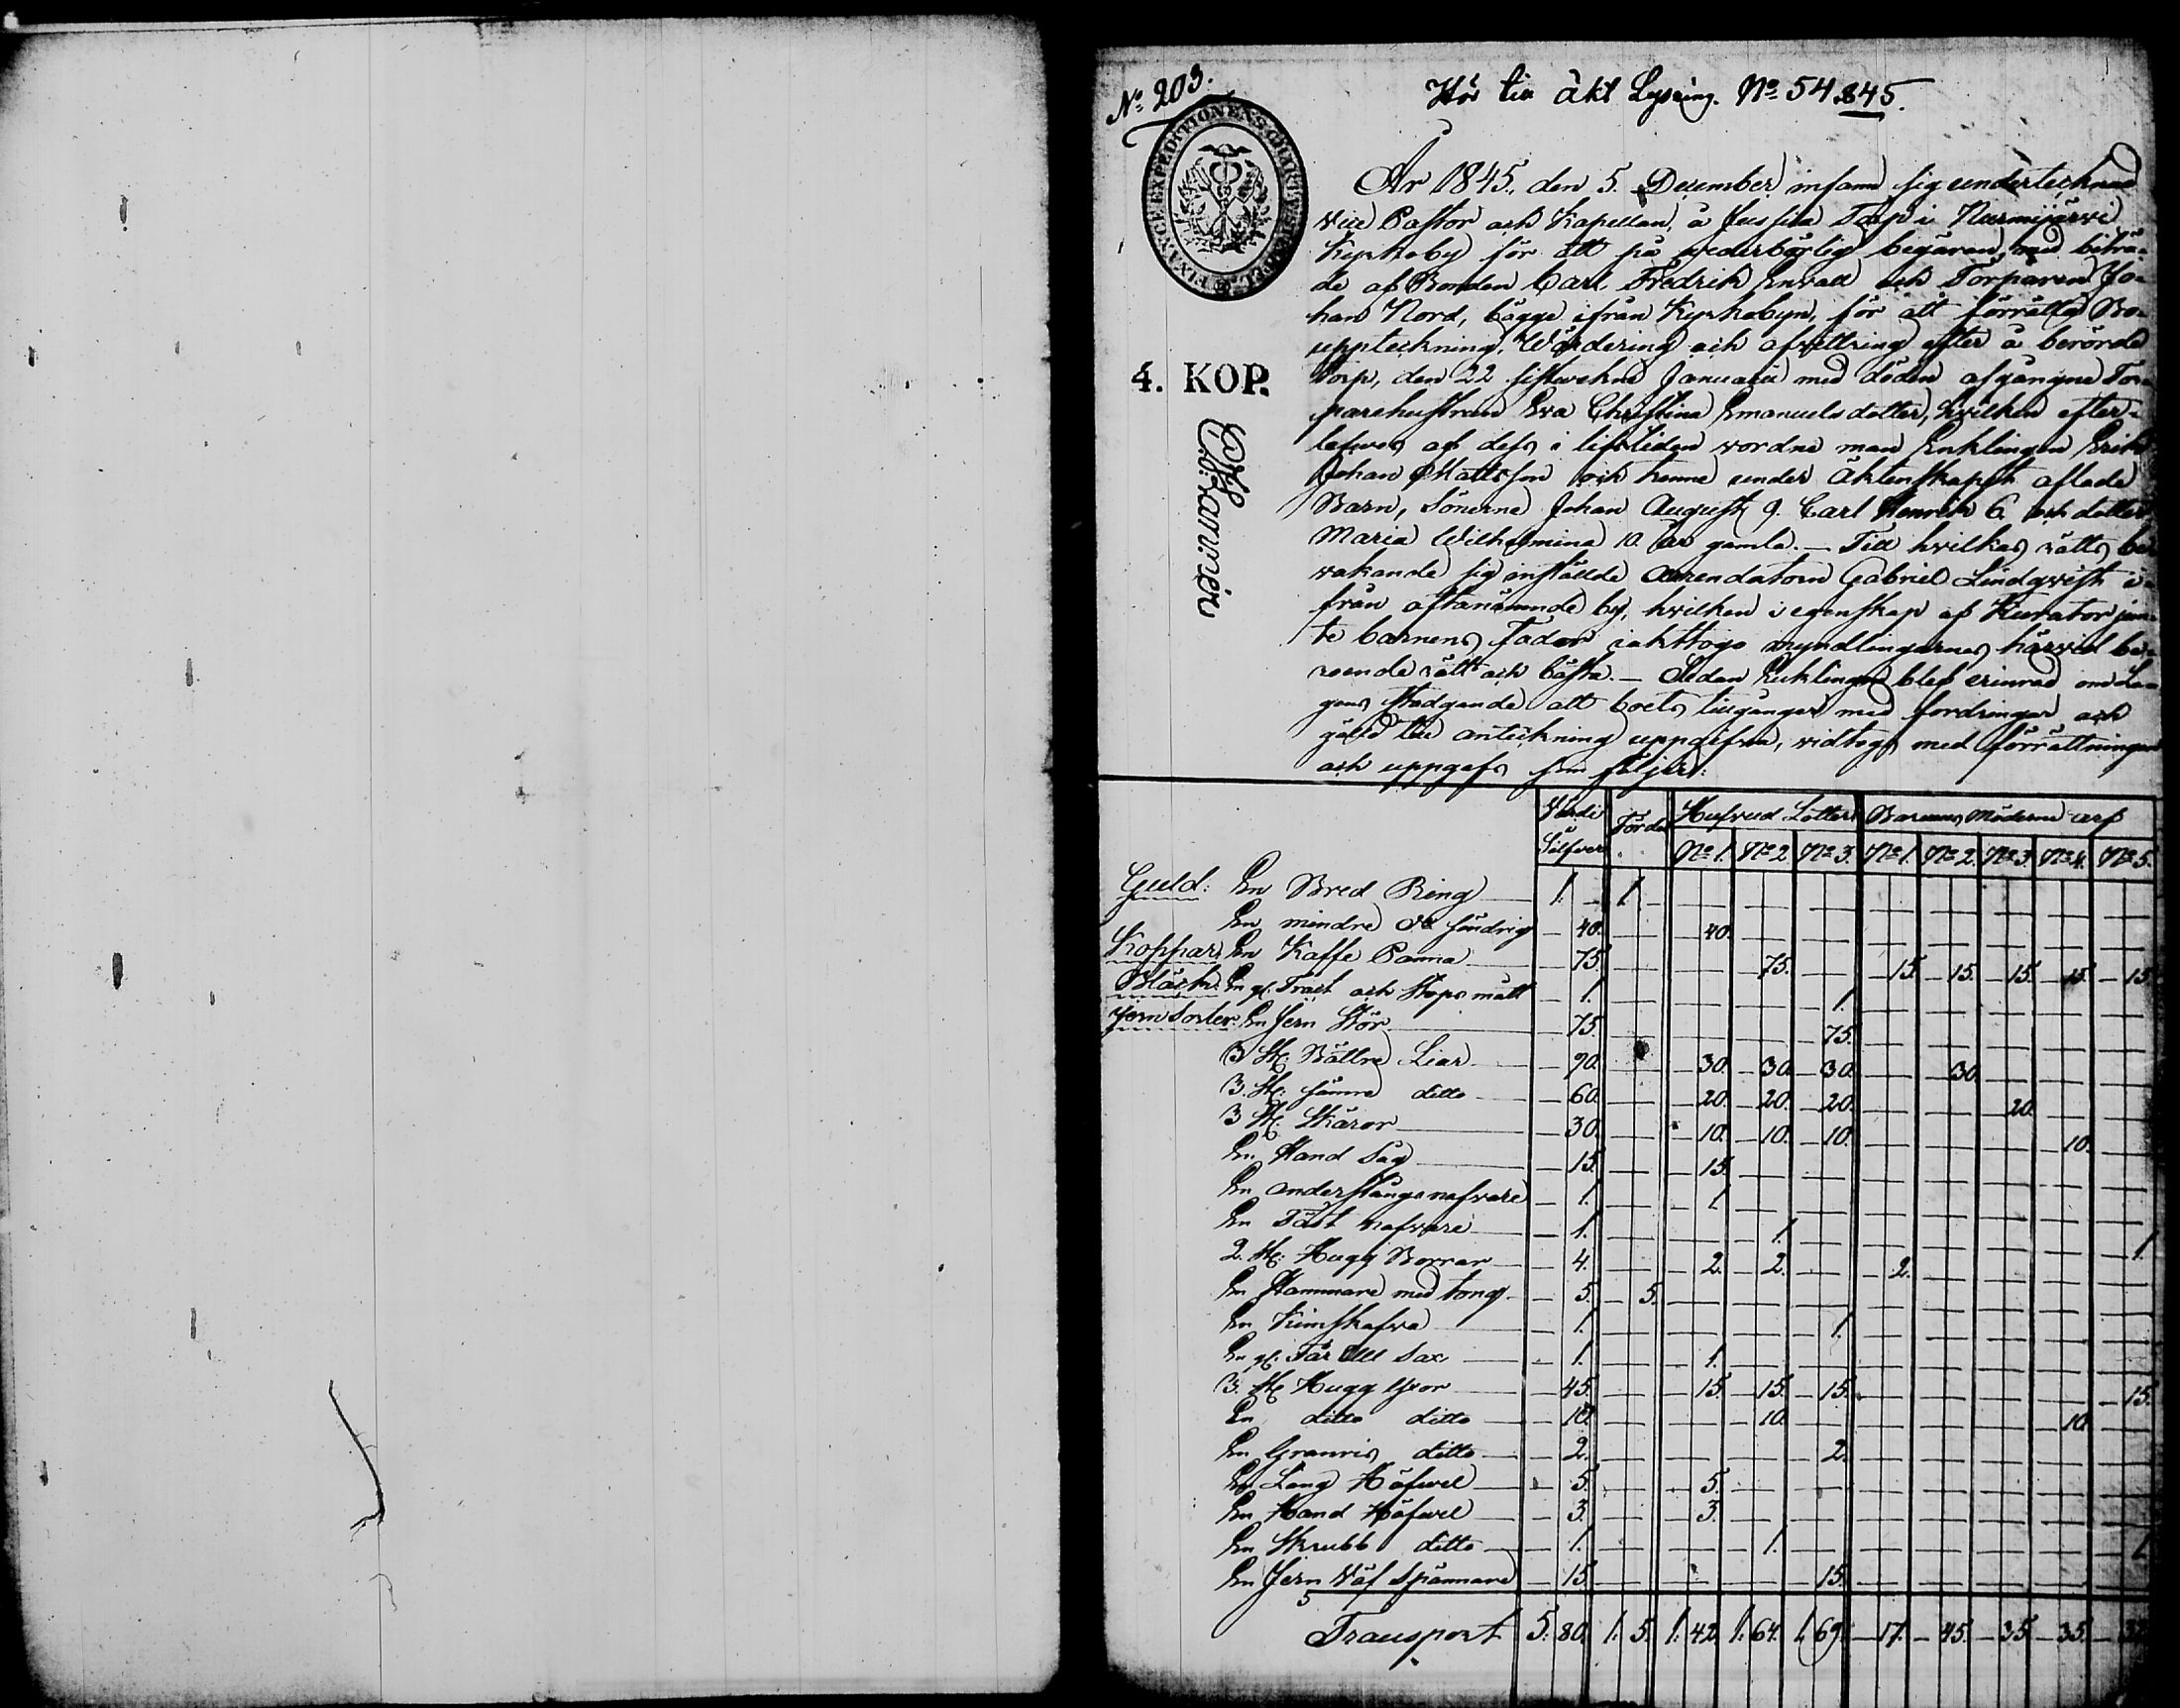 No 203.
Hör till äkt Lysning. No 54.845.
FINANCE EXPEDITIONENS CHARTÆ STEMPEL
4. KOP.
År 1845. den 5. December infann sig undertecknad
vice Pastor och Kapellan, å Jussila Torp i Nurmijärvi
Kyrkoby för att på vederbörlig begäran, med biträ-
de af Bonden Carl Fredrik Envall och Torparen Jo-
han Nord, bägge ifrån Kyrkobyn, för att förrätta Bo-
uppteckning, Wärdering och afvittring efter å berörde
Torp, den 22 sistvekne Januarii med döden afgångne Tor-
parehustrun Eva Christina Emanuelsdotter, hvilken efter-
lefves af dess i lifstiden vordne man Enklingen Erik
Johan Mattsson och henne under äktenskapet aflade
Barn, Sönerne Johan August 9. Carl Henrik 6 och dotter
Maria Wilhelmina 10 år gamla. — Till hvilkas rätts be-
vakande sig inställde Arrendatorn Gabriel Lindqvist i-
från oftanämnde by, hvilken i egenskap af Kurator jem-
te barnens Fader iakttogo myndlingarnes härvid be-
roende rätt och bästa. — Sedan Enklingen blef erinrad om La-
gens stadgande att boets tillgångar med fordringar och
gäld till anteckning uppgifva, vidtogs med förrättningen
och uppgafs som följer:
Värde Silfver Förde Hufvud Lotter Barnens Möderne arf
No 1. No 2 No 3. No 1. No 2. No 3. No 4. No 5.
Guld: En Bred Ring 1. — 1. —
En mindre do söndrig — 40. — 40.
Koppar: En Kaffe Panna — 75. — 75. — 15. — 15. — 15. — 15. — 15.
Bläck: En gl: Tratt och Stops mått — 1. — 1.
Jern Sorter: En Jern Stör — 75. — 75.
3 St: Bättre Liar — 90. — 30. — 30. — 30. — 30.
3. St: sämre ditto — 60. — 20. — 20. — 20. — 20.
3 St: Skäror — 30. — 10. — 10. — 10. — 10.
En Hand Såg — 15. — 15.
En anderstångs nafvare — 1. — 1
En Tåst nafvare — 1. — 1. — 1.
2. St: Hugg Borrar — 4. — 2. — 2. — 2.
En Hammare med tong — 5. — 5.
En Kimskafva — 1. — 1.
En gl: Får Ull Sax — 1. — 1.
3. St: Hugg Yxor — 45. — 15. — 15. — 15. — 15.
En ditto ditto — 10. — 10. — 10.
En Granris ditto — 2. — 2.
En Lång Höfvel — 5. — 5.
En Hand Höfvel — 3. — 3.
En Skrubb ditto — 1. — 1. — 1.
En Jern Väf Spännare — 15. — 15.
Transport 5. 80. 1. 5. 1. 42. 1. 64. 1. 69. — 17. — 45. — 35. — 35. — 32